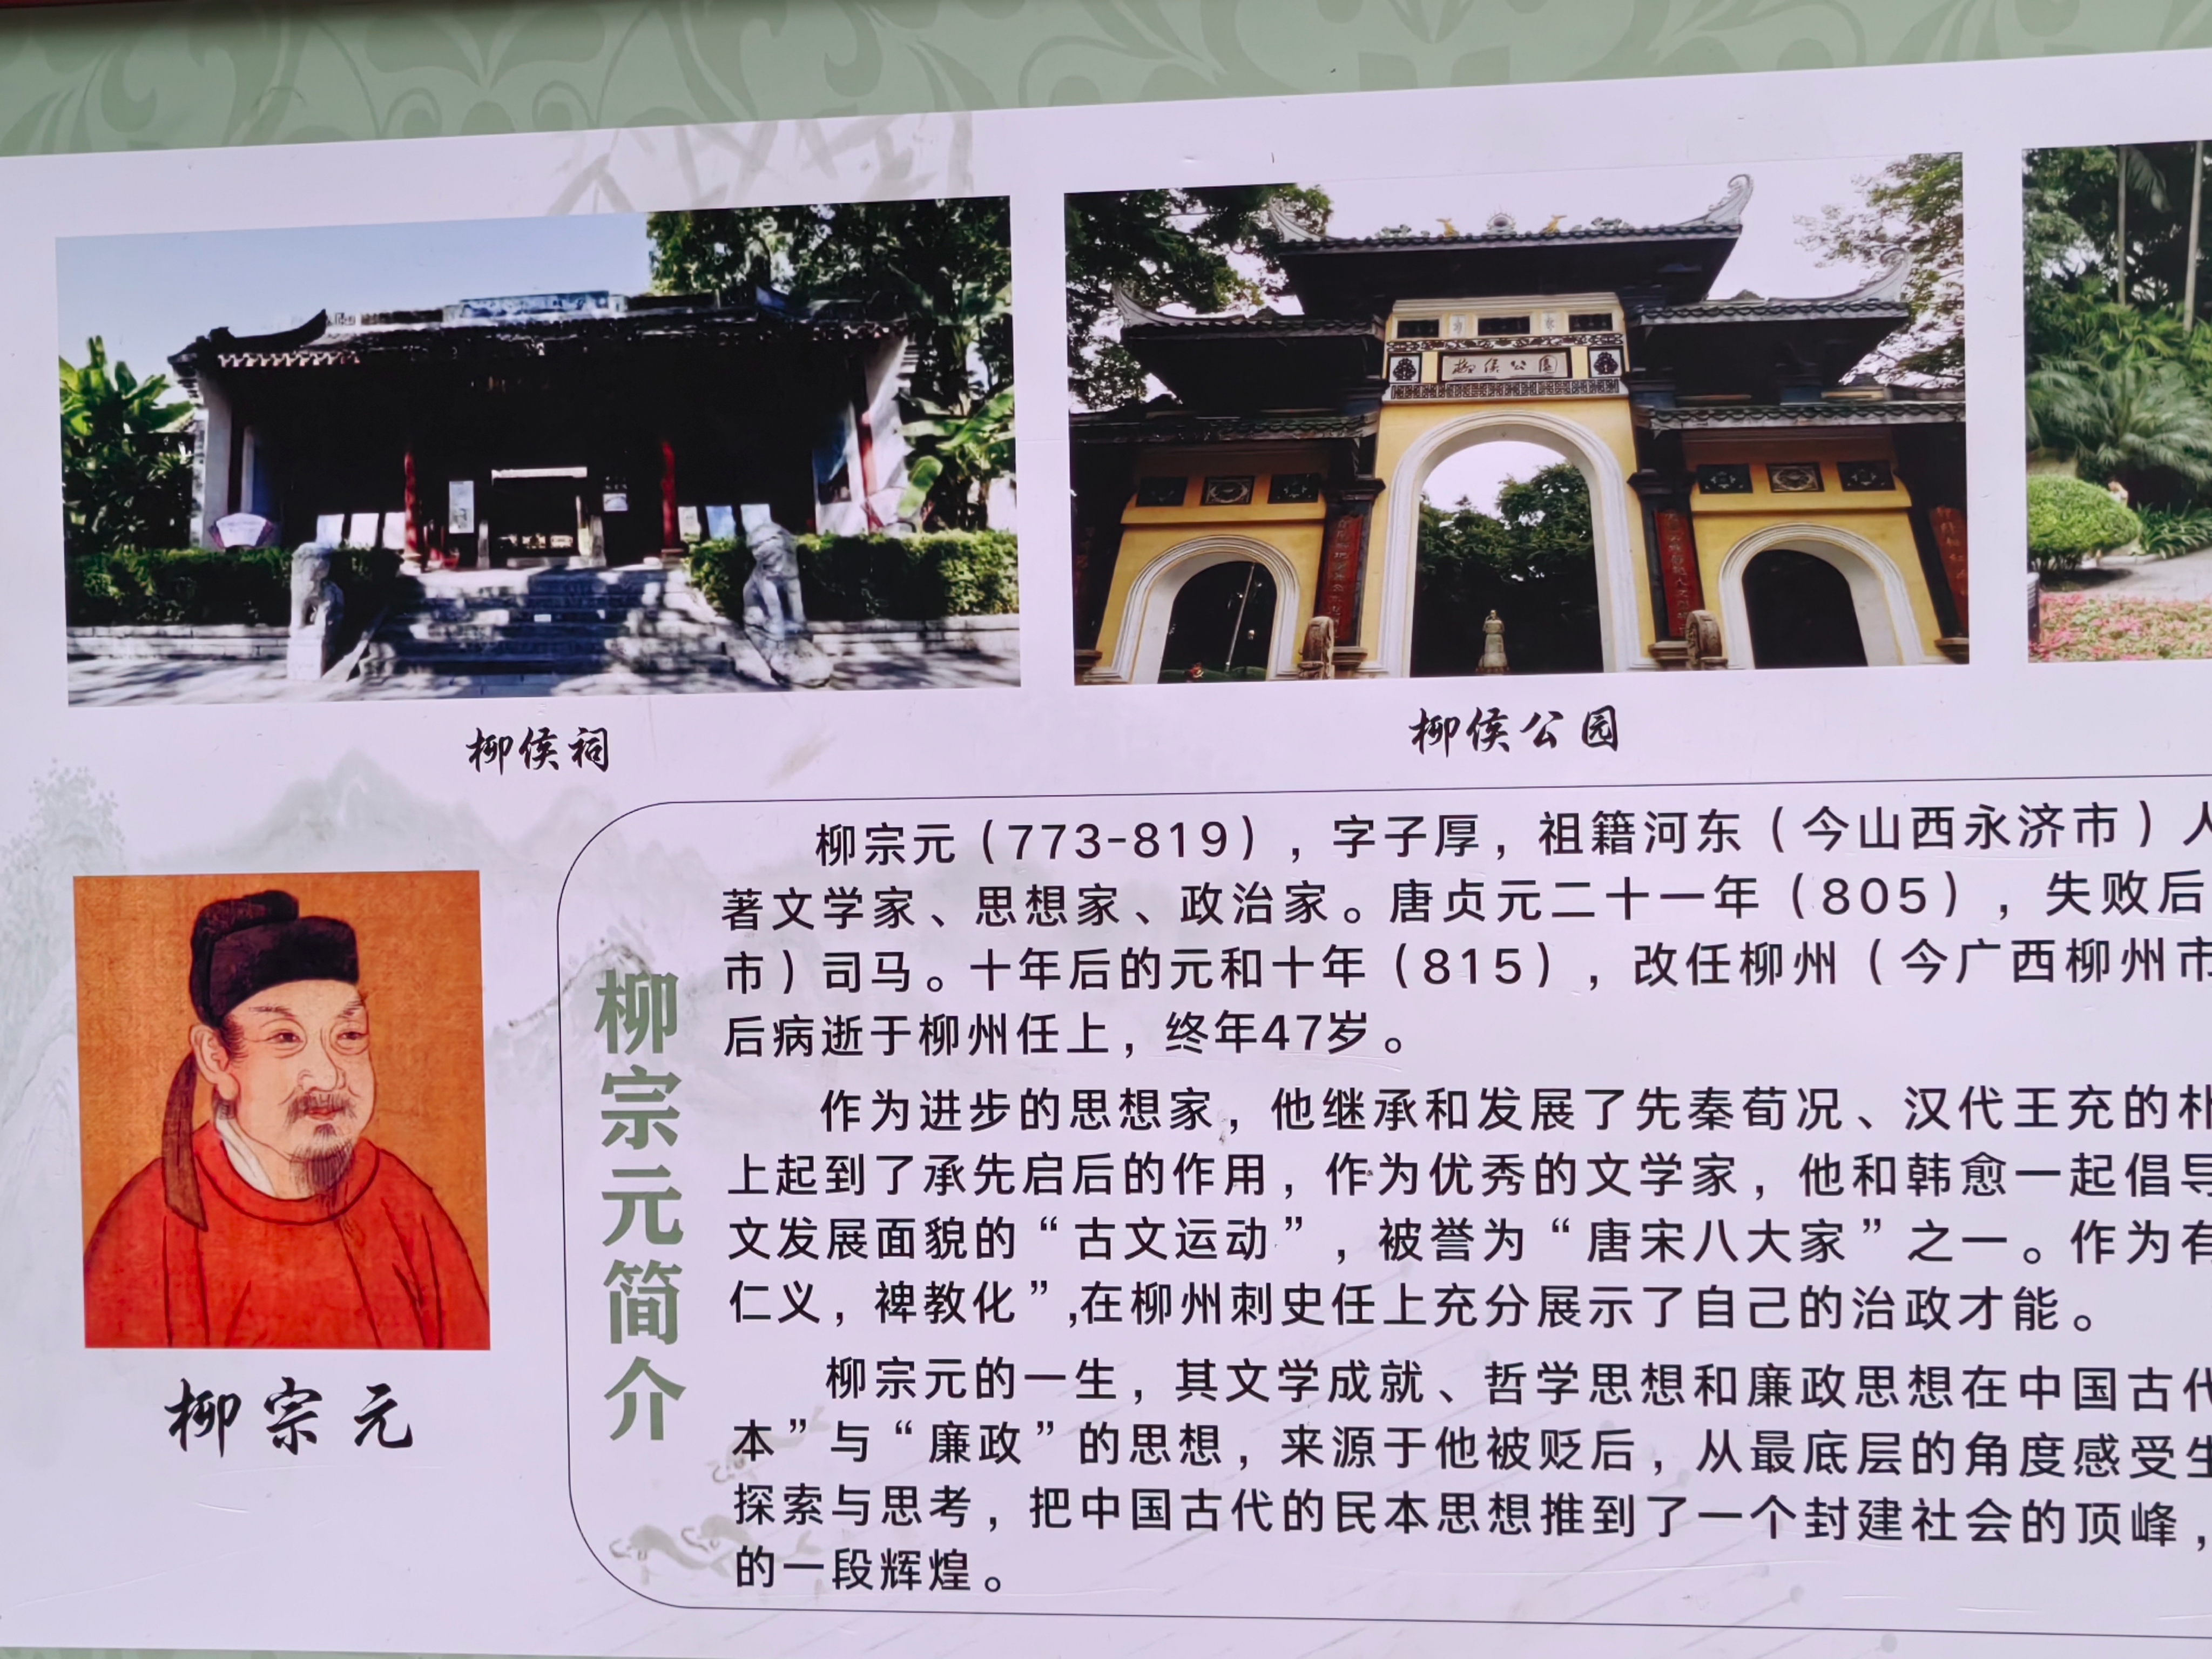 柳侯公园
柳侯祠
柳侯公园
柳宗元
柳宗元简介
柳宗元（773-819），字子厚，祖籍河东（今山西永济市）人
著文学家、思想家、政治家。唐贞元二十一年（805），失败后
市）司马。十年后的元和十年（815），改任柳州（今广西柳州市
后病逝于柳州任上，终年47岁。
作为进步的思想家，他继承和发展了先秦荀况、汉代王充的朴
上起到了承先启后的作用，作为优秀的文学家，他和韩愈一起倡导
文发展面貌的“古文运动”，被誉为“唐宋八大家”之一。作为有
仁义，裨教化”,在柳州刺史任上充分展示了自己的治政才能。
柳宗元的一生，其文学成就、哲学思想和廉政思想在中国古代
本”与“廉政”的思想，来源于他被贬后，从最底层的角度感受生
探索与思考，把中国古代的民本思想推到了一个封建社会的顶峰，
的一段辉煌。